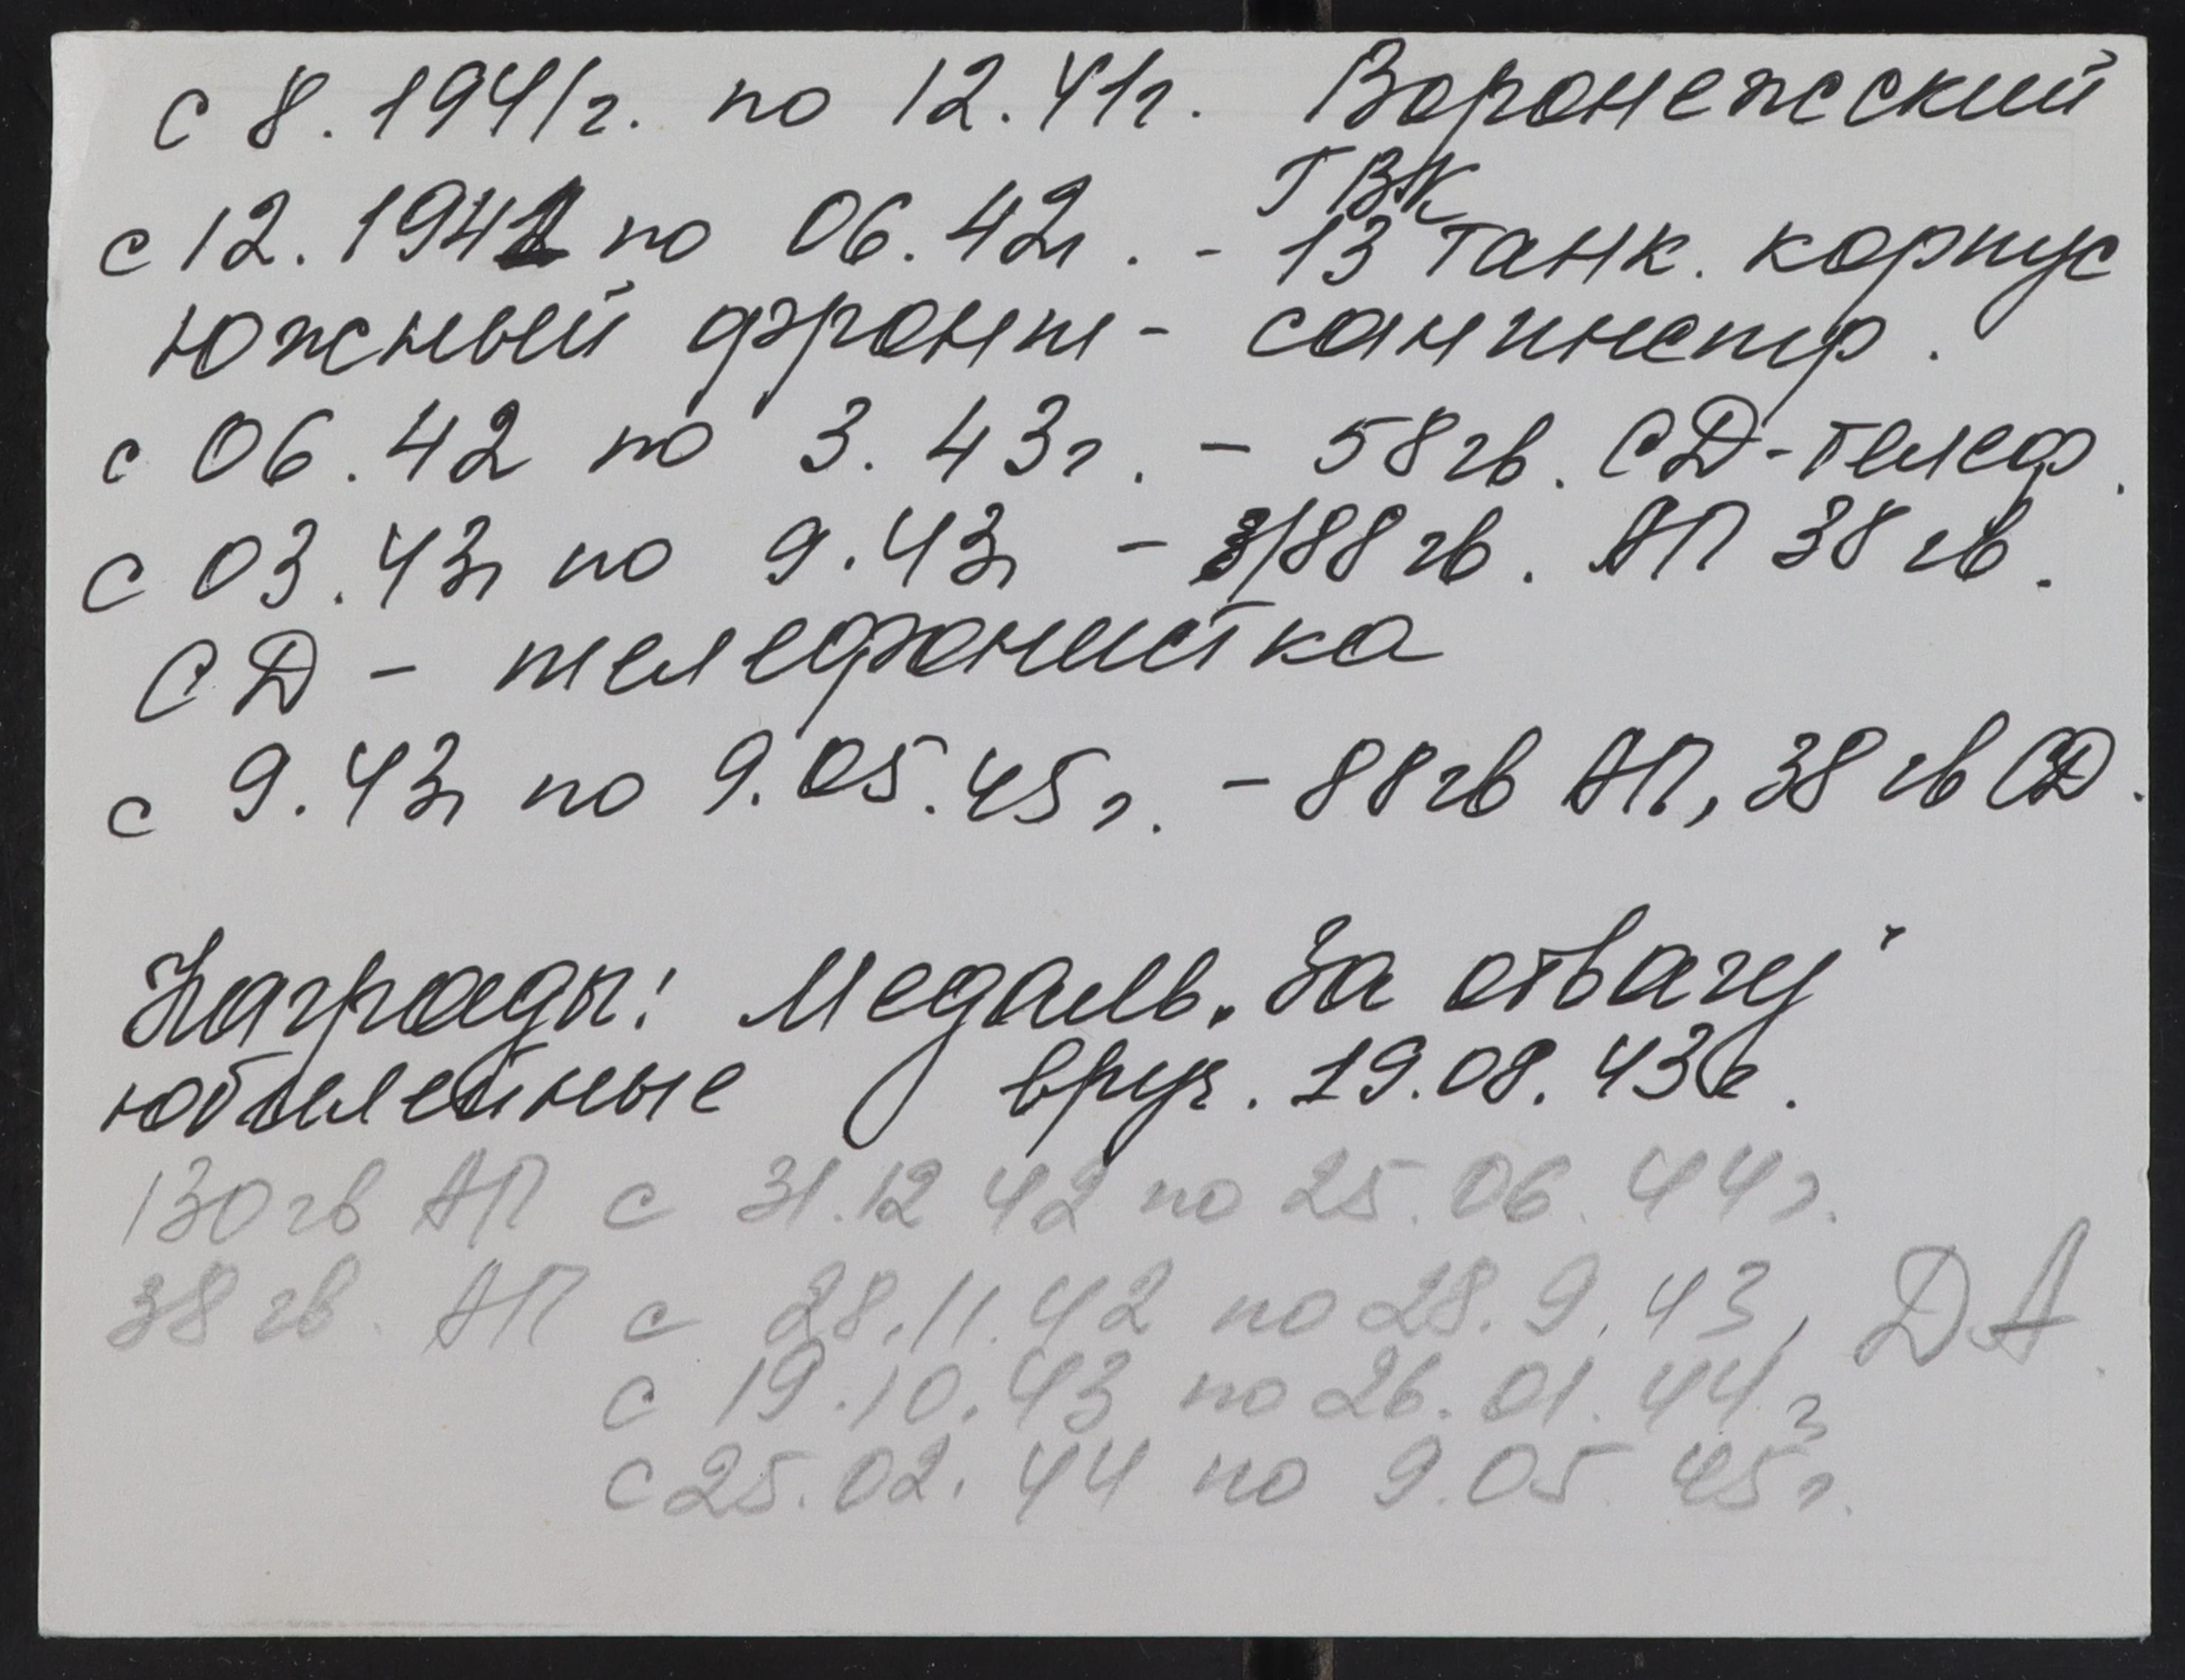 с 8.1941г. по 12.41г. Воронежский
ГВК
с 12.1941 по 06.42г. - 13 танк. корпус
южный фронт - санинстр.
с 06.42 по 3.43г. - 58 гв. СД - телеф.
с 03.43г по 9.43г - 88 гв. АП 38 гв.
СД - телефонистка
с 9.43г по 9.05.45г. - 88 гв АП, 38 гв СД.
Награды: Медаль „За отвагу"
юбилейные вруч. 19.08.43г.
130 гв АП с 31.12 42 по 25.06.44г.
38 гв. АП с 28.11.42 по 28.9.43, ДА.
с 19.10.43 по 26.01.44г
с 25.02.44 по 9.05 45г.